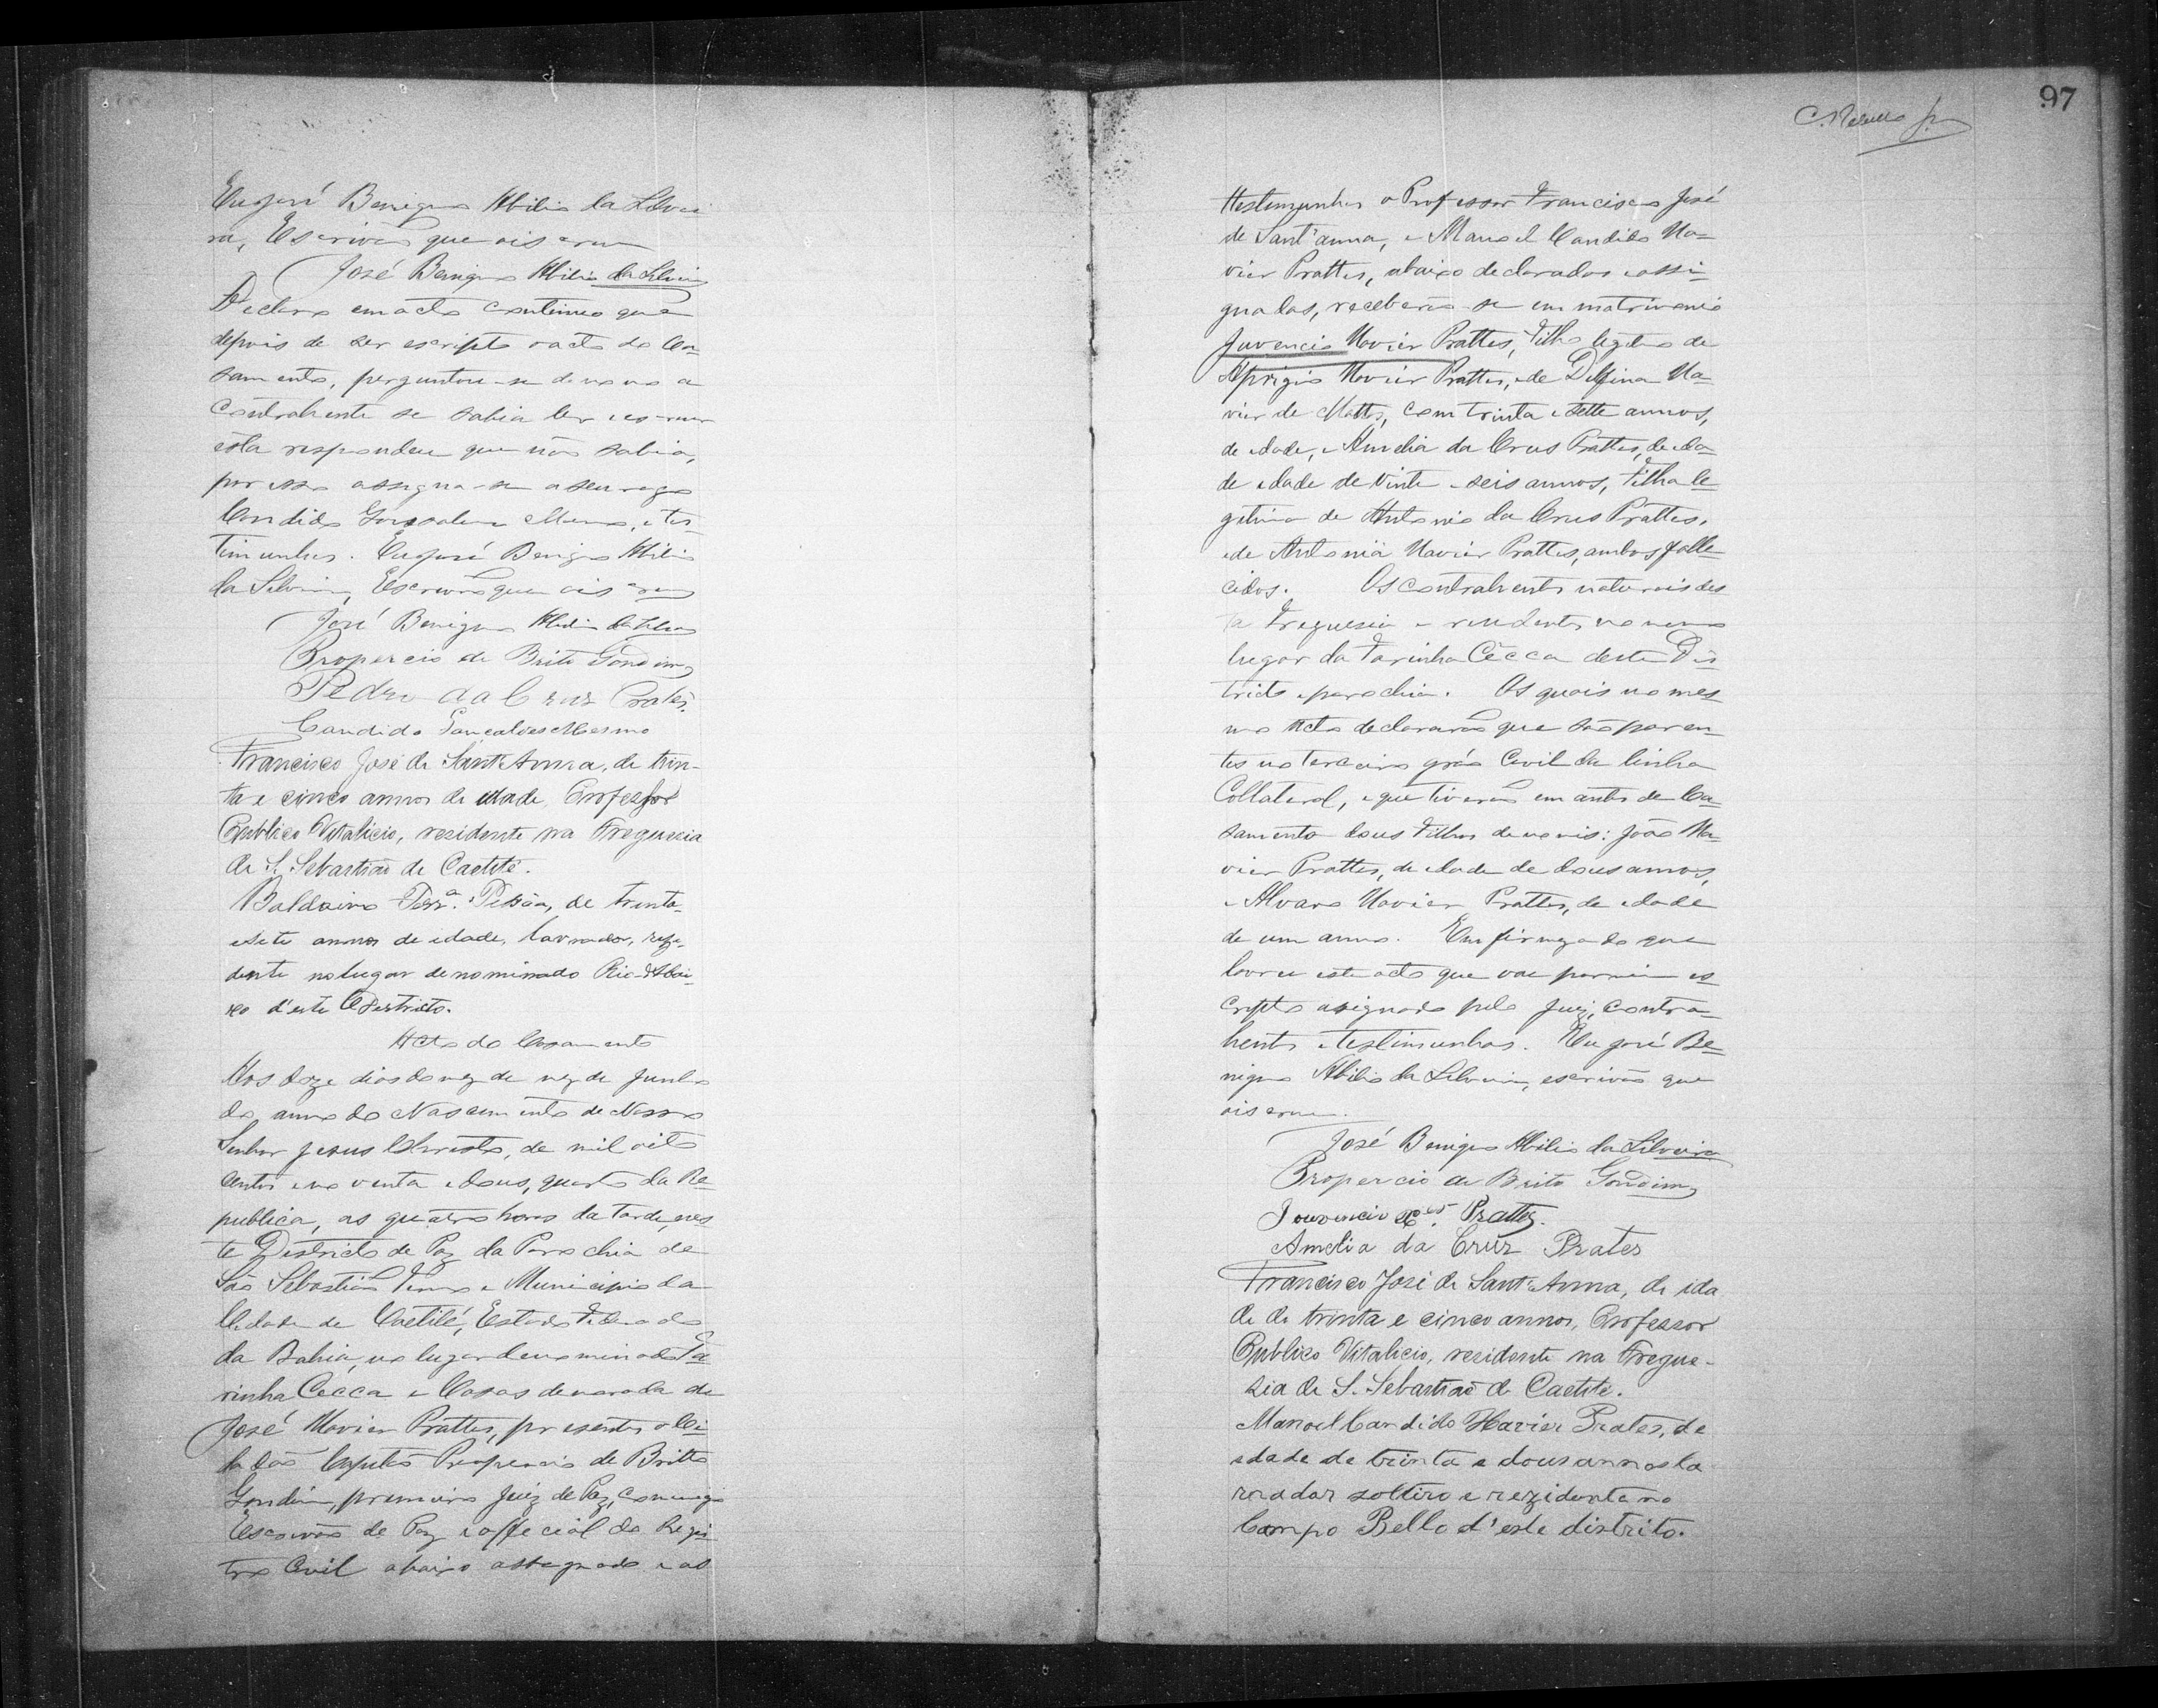 Eu José Benigno Abilio da Silvei
ra, Escrivão que o iscrevi
José Benigno Abilio da Silveira
Declaro em acto continuo que
depois de ser escripto o acto do Ca-
samento, perguntou-se de novo a
Contrahente se sabia ler e escrever
esta respondeu que não sabia,
por isso assigna-se a seu rogo
Candido Gonsalves Mesmo, e tes
timunhas. Eu José Benigno Abilio
da Silveira, Escrivão que o iscrevi
José Benigno Abilio da Silveira
Propercio de Brito Gondim
Pedro da Cruz Prates.
Candido Gonçalves Mesmo
Francisco José de Sant'Anna, de trin-
ta e cinco annos de idade, Professor
Publico Vitalicio, residente na Freguezia
de S. Sebastião de Caetité.
Baldoino Perª. Peixão, de trinta
e sete annos de idade, lavrador, rezi-
dente no lugar denominado Rio-Abai-
xo d'este Destricto.
Acto do Casamento
Aos doze dias do mez de mez de Junho
do anno do Nascimento de Nosso
Senhor Jesus Christo, de mil oito
centos e noventa e dous, quarto da Re-
publica, as quatro horas da tarde, nes
te Districto de Paz da Parochia de
São Sebastião Termo e Municipio da
Cidade de Caetité, Estado Federado
da Bahia, no lugar denominado Fa-
rinha Cêcca e Casas de morada de
José Xavier Prattes, presentes o Ci-
dadão Capitão Propercio de Britto
Gondim, primeiro Juiz de Paz, comigo
Escrivão de Paz e official do Regis-
tro Civil abaixo assignado e as
97
Testimunhas o Professor Francisco José
de Sant'anna, e Manoel Candido Xa-
vier Prattes, abaixo declarados e assi-
gnados, receberão-se em matrimonio
Juvencio Xavier Prattes, Filho legitimo de
Aprigio Xavier Prattes, e de Delfina Xa-
vier de Mattos, com trinta e sette annos,
de idade, e Amelia da Crus Prattes, de ida-
de idade de vinte e seis annos, Filha le-
gitima de Antonio da Crus Prattes,
e de Antonia Xavier Prattes, ambos falle-
cidos. Os contrahentes naturais des
ta Freguesia e residentes no mesmo
lugar da Farinha Cêcca deste Dis-
tricto e parochia. Os quais no mes
mo Acto declararão que são paren-
tes no terceiro gráo Civil da linha
Collateral, e que tiverão em antes de Ca-
samento dous Filhos de nomis: João Xa-
vier Prattes, de idade de dous annos,
e Alvaro Xavier Prattes, de idade
de um anno. Em firmeza do que
lavrei este acto que vai por mim es-
cripto asignado pelo Juiz, contra-
hentes e testimunhas. Eu José Be-
nigno Abilio da Silveira, escrivão que
o iscrevi.
José Benigno Abilio da Silveira
Propercio de Brito Gondim
Jouvencio Xer. Prattes.
Amelia da Cruz Prates
Francisco José de Sant'Anna, de ida
de de trinta e cinco annos, Professor
Publico Vitalicio, residente na Fregue-
zia de S. Sebastião de Caetité.
Manoel Candido Xavier Prates, de
idade de trinta e dous annos la
vrador solteiro e rezidente no
Campo Bello d'este distrito.